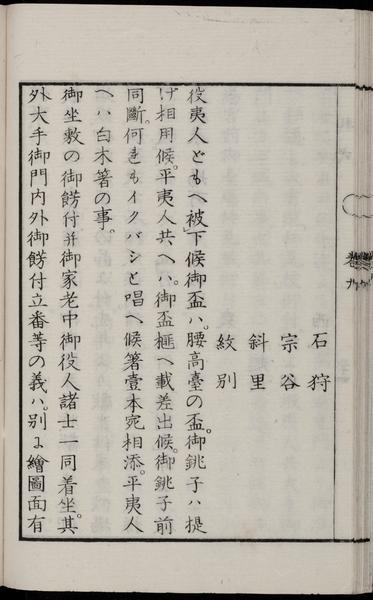 石狩
宗谷
斜里
紋別
役夷人ともへ被下候御盃ハ。腰高臺の盃。御銚子ハ提
け相用候。平夷人共へハ。御盃櫃へ載差出候。御銚子前
同斷。何れもイクバシと唱へ候箸壹本宛相添。平夷人
へハ白木箸の事。
御坐敷の御餝付并御家老中御役人諸士一同着坐。其
外大手御門内外御餝付立番等の義ハ。別に繪圖面有